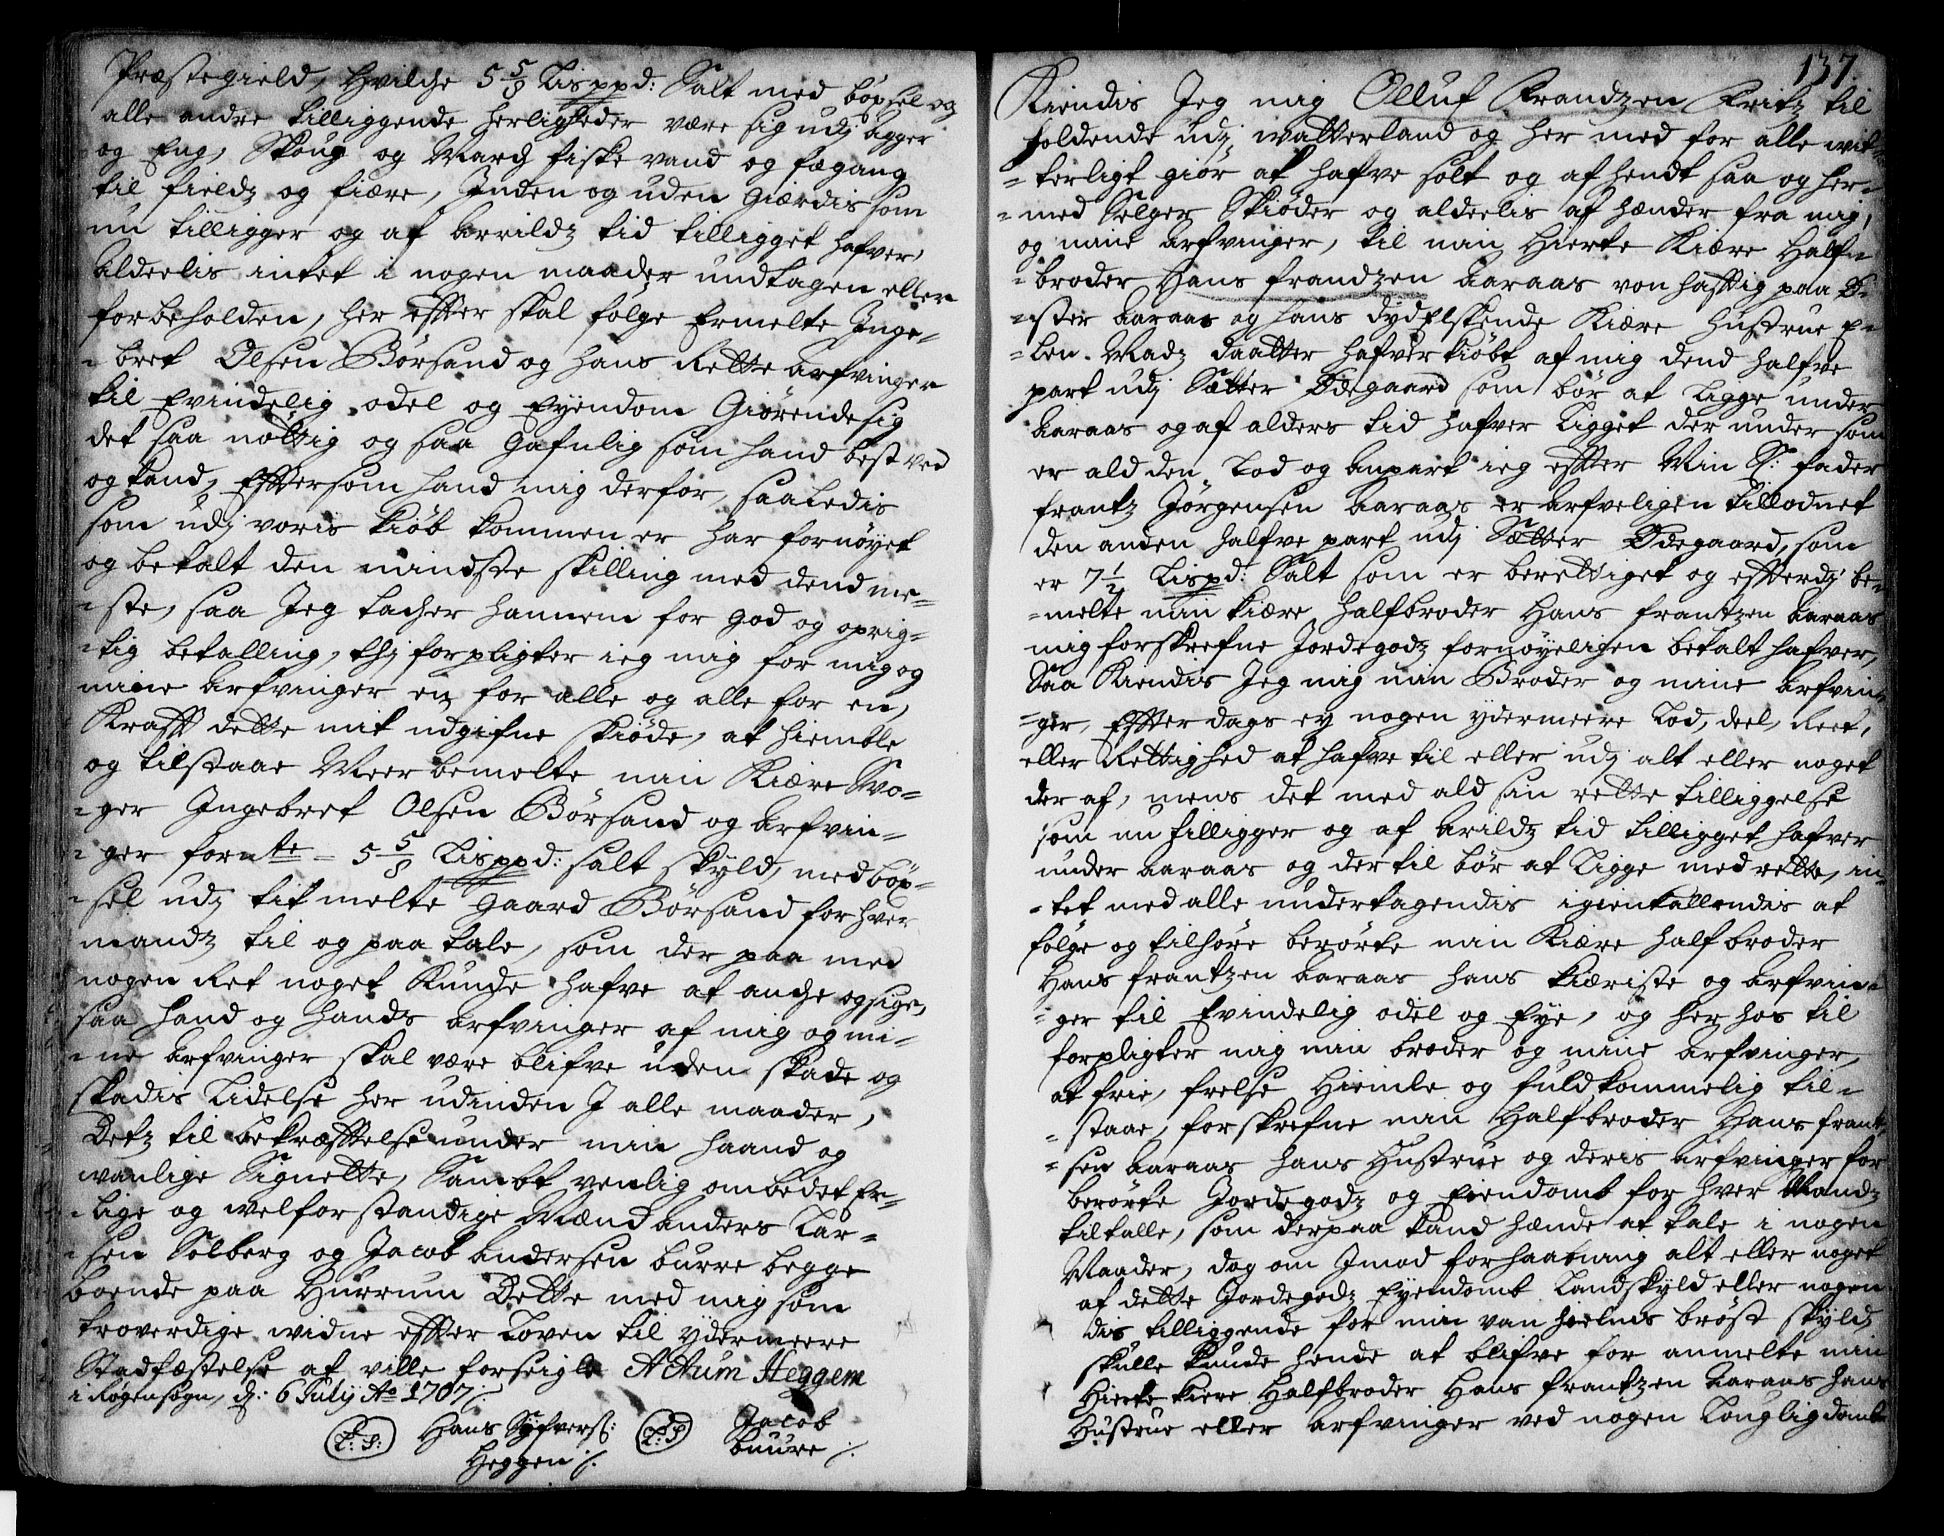 Præstegield, hvilche 5 5/8 Lisppd: Salt med böxsel og
alle andre tilliggende herligheder være sig udj agger
og Eng, Skoug og March fiske vand og fægang
til fieldz og fiære, Inden og uden Giærdis som
nu tilligger og af arrildz tid tilligget hafver,
aldeelis intet i nogen maader undtagen eller
forbeholden, her effter skal følge Ermelte Inge-
-bret Olsen Börsand og hans Rette arfvinger
til Evindelig odel og Eyendom Giørende sig
det saa nøttig og saa Gafnlig som hand best ved
og kand, Effter som hand mig derfor, saaledis
som udj voris kiöb kommen er har fornöyet
og betalt den mindste skilling med dend me-
-ste, saa Jeg tacher hannem for god og oprig-
-tig betalling, thj forpligter ieg mig for mig og
mine arfvinger en for alle og alle for en,
Krafft dette mit udgifne skiöde, at hiemble
og tilstaae Meerbemelte min Kiære Svo-
-ger Ingebret Olsen Börsand og arfvin-
-ger fornte - 5 5/8 Lisppd: salt skyld, med böx-
-sel udj titmelte gaard Börsand for hver
mandz til og paa tale, som der paa med
nogen Ret noget Kunde hafve at anche og sige,
saa hand og hands arfvinger af mig og mi-
-ne arfvinger skal være blifve uden skade og
skadis Lidelse her udinden I alle maader,
Detz til bekræfftelse under min haand og
vanlige Signette, Sambt venlig ombedet Er-
-lige og welforstandige Mænd anders Lar-
-sen Solberg og Jacob andersen burre begge
boende paa Hurrum Dette med mig som
troverdige widne effter Loven til ydermeere
Stadfæstelse at ville forseigle Actum Heggem
i Rogensogn, d: 6 July Ao 1707 /
L: S: Hans Syfvers: L: S Jacob
Heggen /. buure /.
137.
Kiendis Jeg mig Olluf Frandzen Kritz til
holdende udj watterland og her med for alle wit-
-terligt giör at hafve solt og afhendt saa og her-
-med Selger Skiøder og aldeelis af hænder fra mig,
og mine arfvinger, til min Hierte Kiære Half-
-broder Hans frandzen aaraas von hafftig paa Ö-
-ster aaraas og hans dydElskende Kiære Hustrue E-
-len. Madz daatter hafver kiöbt af mig dend halfve
part udj Sætter Ödegaard som bör at Ligge under
aaraas og af alders tid hafver Ligget der under som
er ald den Lod og anpart ieg effter Min S: fader
frantz Jörgensen aaraas er arfveligen tillodnet
den anden halfve part udj Sætter Ödegaard, som
er 7 1/2 Lispd: Salt som er berettiget og effterdj be-
-melte min kiære halfbroder Hans frantzen aaraas
mig forskrefne Jordegodz fornöyeligen betalt hafver,
Saa Kiendis Jeg mig min Broder og mine arfvin-
-ger, Effter dags ey nogen ydermeere Lod, deel, Reet,
eller Rettighed at hafve til eller udj alt eller noget
der af, mens det med ald sin rette tilliggelse
som nu tilligger og af arildz tid tilligget hafver
under aaraas og der til bör at Ligge med rette, in-
-tet med alle undertagendis igienkallendis at
fölge og tilhöre berörte min Kiære halfbroder
Hans frantzen aaraas hans kiæriste og arfvin-
-ger til Evindelig odel og Eye, og her hos til
forpligter mig min broder og mine arfvinger,
at frie, frelse hiemle og fuldkommelig til-
-staae, forskrefne min Halfbroder Hans frant-
-sen aaraas hans Hustrue og deris arfvinger for
berörte Jordegodz og Eiendomb for hver Mandz
tiltalle, som derpaa kand hænde at tale i nogen
Maader, dog om Imod forhaabning alt eller noget
af dette Jordegodz Eyendomb Landskyld eller nogen
dis tilliggende for min van hielmds bröst skyld,
skulle kunde hende at blifve for anmelte min
Hierte kiere Halfbroder Hans frantzen aaraas hans
Hustrue eller arfvinger ved nogen Louglig domb